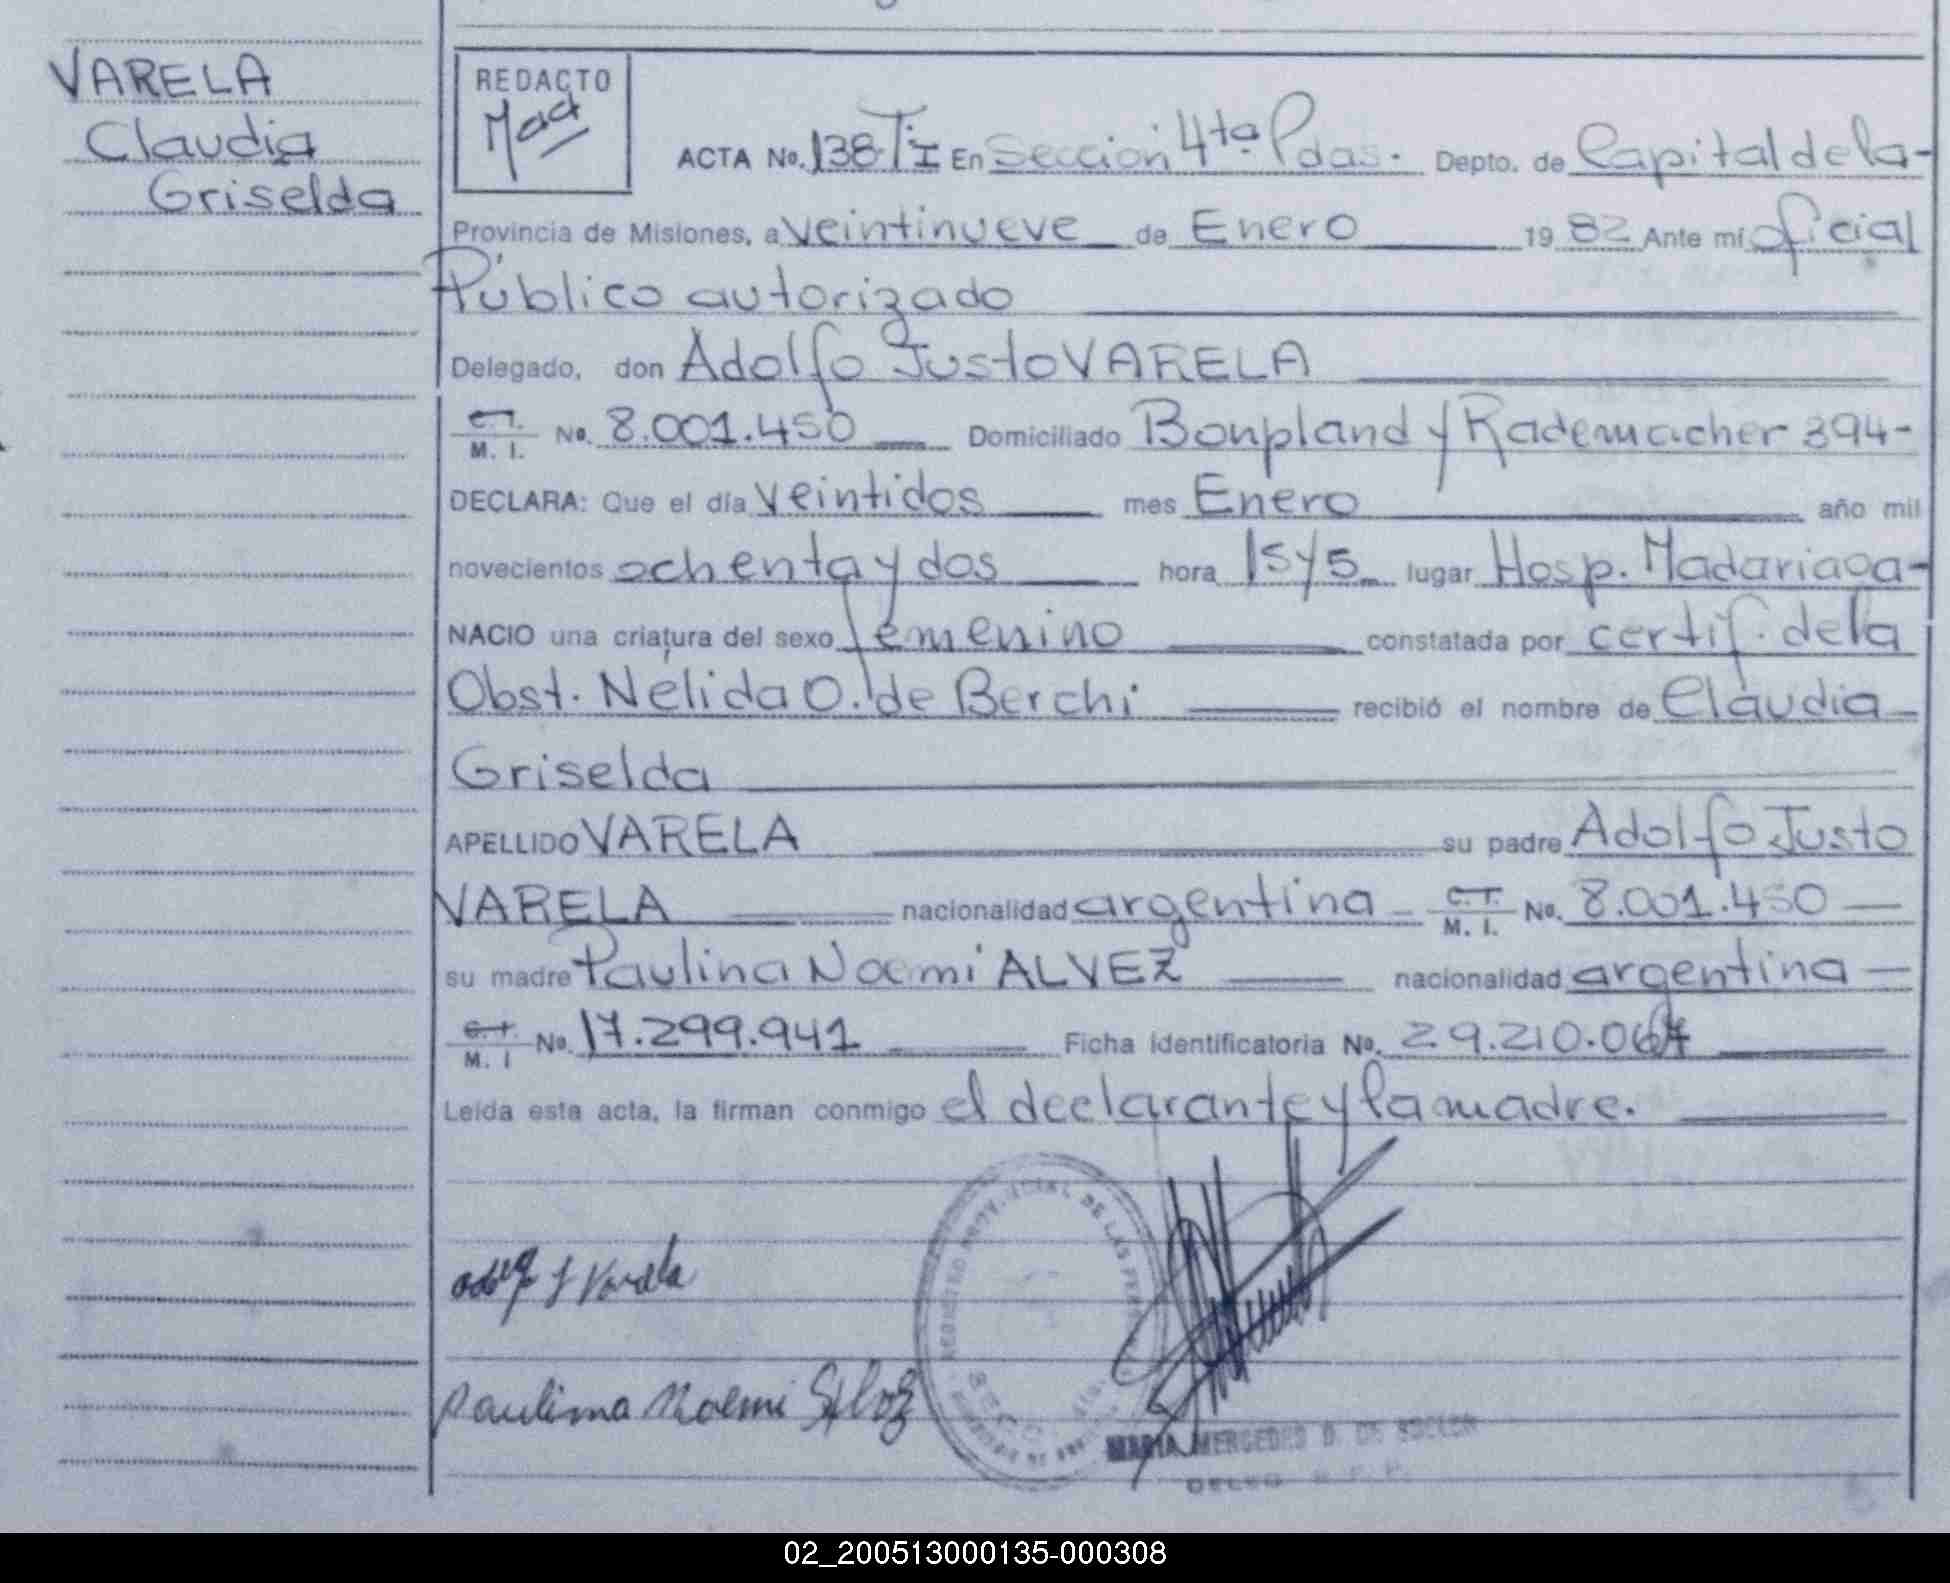 VARELA
Claudia
Griselda
REDACTO
ACTA No. 138 TI En Sección 4ta Pdas. Depto. de Capital de la-
Provincia de Misiones, a veintinueve de Enero 1982 Ante mí oficial
Público autorizado
Delegado, don Adolfo Justo VARELA
C.I. M. I. No. 8.001.450 Domiciliado Bonpland y Rademacher 394-
DECLARA: Que el día veintidos mes Enero año mil
novecientos ochenta y dos hora 15 y 5 lugar Hosp. Madariaga-
NACIO una criatura del sexo femenino constatada por certif. de la
Obst. Nélida O. de Berchi recibió el nombre de Claudia
Griselda
APELLIDO VARELA su padre Adolfo Justo
VARELA nacionalidad argentina C.I. M. I. No. 8.001.450
su madre Paulina Noemi ALVEZ nacionalidad argentina
C.I. M. I No. 17.299.941 Ficha identificatoria No. 29.210.064
Leída esta acta, la firman conmigo el declarante y la madre.
Adolfo J Varela
Paulina Noemi
MARIA MERCEDES D. DE
02_200513000135-000308